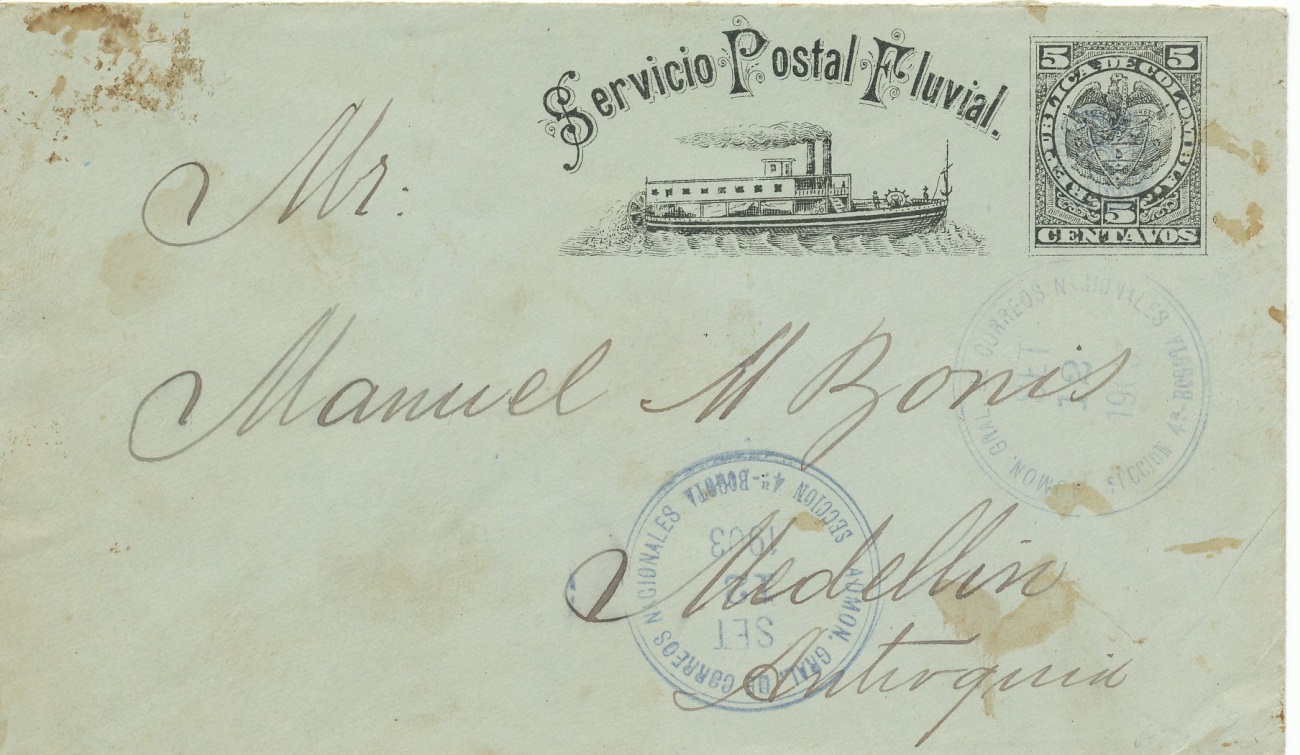 Servicio Postal Fluvial.
5 5
REPUBLICA DE COLOMBIA
5
CENTAVOS
Mr.
Manuel M Bonis
Medellin
Antioquia
ADMON. GRAL. DE CORREOS NACIONALES
SET
SECCION 4ª-BOGOTA
ADMON. GRAL. DE CORREOS NACIONALES
SET
12
1903
SECCION 4ª-BOGOTA